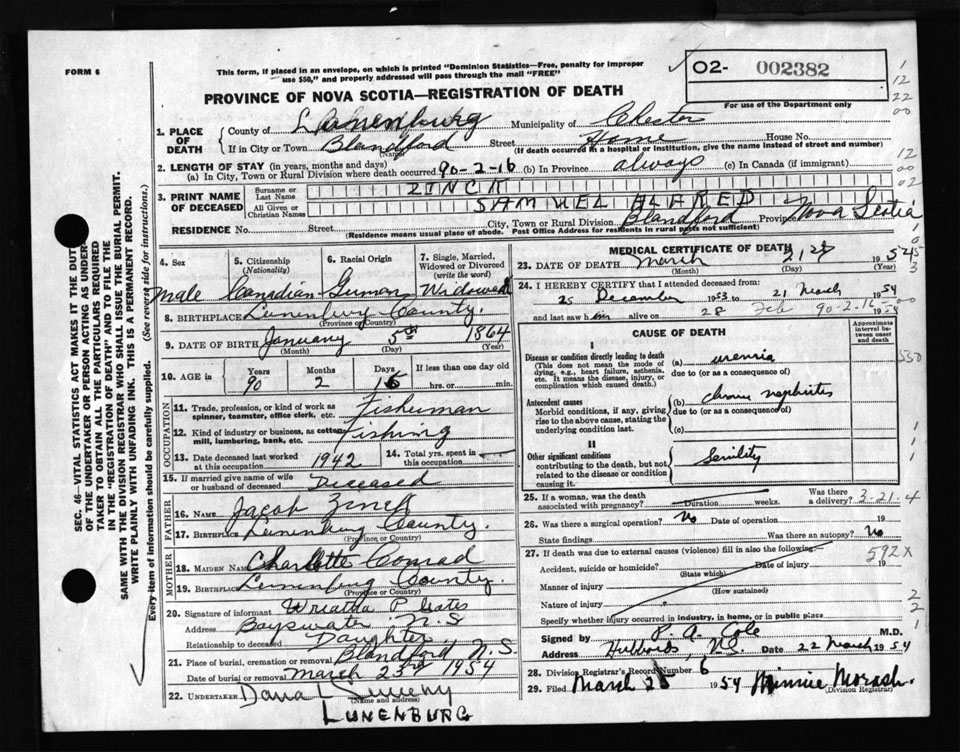 FORM 6
This form, if placed in an envelope, on which is printed "Dominion Statistics—Free, penalty for improper
use $50," and properly addressed will pass through the mail "FREE"
02- 002382
For use of the Department only
PROVINCE OF NOVA SCOTIA—REGISTRATION OF DEATH
1. PLACE OF DEATH
County of Lunenburg Municipality of Chester
If in City or Town Blandford Street Home House No.
(Name) (If death occurred in a hospital or institution, give the name instead of street and number)
2. LENGTH OF STAY (in years, months and days)
(a) In City, Town or Rural Division where death occurred 90-2-16 (b) In Province always (c) In Canada (if immigrant)
3. PRINT NAME OF DECEASED
Surname or Last Name ZINCK
All Given or Christian Names SAMUEL ALFRED
RESIDENCE No. Street City, Town or Rural Division Blandford Province Nova Scotia
(Residence means usual place of abode. Post Office Address for residents in rural parts not sufficient)
4. Sex
Male
5. Citizenship
(Nationality)
Canadian
6. Racial Origin
German
7. Single, Married, Widowed or Divorced
(write the word)
Widowed
8. BIRTHPLACE Lunenburg County.
(Province or Country)
9. DATE OF BIRTH January 5th 1864
(Month) (Day) (Year)
10. AGE in
Years 90
Months 2
Days 16
If less than one day
hrs. or min.
OCCUPATION
11. Trade, profession, or kind of work as spinner, teamster, office clerk, etc. Fisherman
12. Kind of industry or business, as cotton mill, lumbering, bank, etc. Fishing
13. Date deceased last worked at this occupation 1942
14. Total yrs. spent in this occupation
15. If married give name of wife or husband of deceased Deceased
FATHER
16. NAME Jacob Zinck
17. BIRTHPLACE Lunenburg County.
(Province or Country)
MOTHER
18. MAIDEN NAME Charlotte Conrad
19. BIRTHPLACE Lunenburg County.
(Province or Country)
20. Signature of informant P Gates
Address Bayswater N.S
Relationship to deceased Daughter
21. Place of burial, cremation or removal Blandford N.S.
Date of burial or removal March 23rd 1954
22. UNDERTAKER Dana L Sweeny
(Name and address)
LUNENBURG
MEDICAL CERTIFICATE OF DEATH
23. DATE OF DEATH March 21st 1954
(Month) (Day) (Year)
24. I HEREBY CERTIFY that I attended deceased from:
25 December 1953 to 21 March 1954
and last saw him alive on 28 Feb 1954
90-2-16
CAUSE OF DEATH
Approximate interval between onset and death
I
Disease or condition directly leading to death
(This does not mean the mode of dying, e.g., heart failure, asthenia, etc. It means the disease, injury, or complication which caused death.)
(a) uremia
due to (or as a consequence of)
Antecedent causes
Morbid conditions, if any, giving rise to the above cause, stating the underlying condition last.
(b) chronic nephritis
due to (or as a consequence of)
(c)
II
Other significant conditions
contributing to the death, but not related to the disease or condition causing it.
Senility
25. If a woman, was the death associated with pregnancy? Duration weeks. Was there a delivery? 3.21.4
26. Was there a surgical operation? No Date of operation 19
State findings Was there an autopsy? No
27. If death was due to external causes (violence) fill in also the following— 592X
Accident, suicide or homicide? Date of injury 19
(State which)
Manner of injury
(How sustained)
Nature of injury
Specify whether injury occurred in industry, in home, or in public place
Signed by P. A. Cole M.D.
Address Hubbards, N.S. Date 22 March 1954
28. Division Registrar's Record Number 6
29. Filed March 1954 Minnie Morash.
(Division Registrar)
SEC. 46—VITAL STATISTICS ACT MAKES IT THE DUTY
OF THE UNDERTAKER OR PERSON ACTING AS UNDER-
TAKER TO OBTAIN ALL THE PARTICULARS REQUIRED
IN THE "REGISTRATION OF DEATH" AND TO FILE THE
SAME WITH THE DIVISION REGISTRAR WHO SHALL ISSUE THE BURIAL PERMIT.
WRITE PLAINLY WITH UNFADING INK. THIS IS A PERMANENT RECORD.
Every item of information should be carefully supplied. (See reverse side for instructions.)